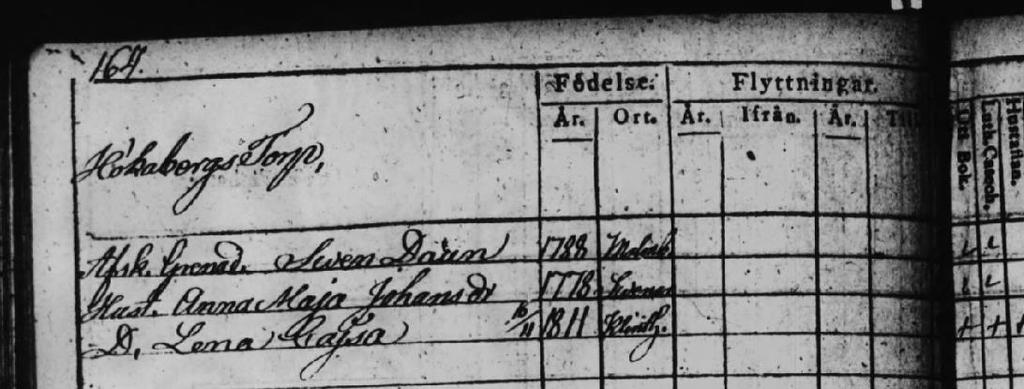 169.
Födelse. Flyttningar.
År. Ort. År. Ifrån. År. Till
Utı Bok.
Luth. Catech.
Hustaflan.
Hökabergs Torp,
Afsk. Grenad. Swen Däan 1788
Hust. Anna Maja Johans dr 1778
D, Lena Cajsa 16/11 1811